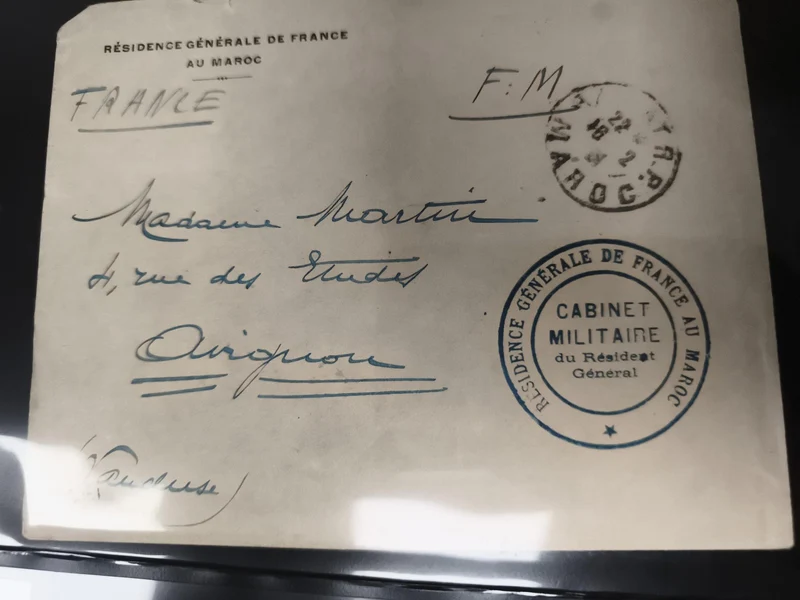 RÉSIDENCE GÉNÉRALE DE FRANCE
AU MAROC
FRANCE
F:M
22
16 2
41
R.P.
MAROC
Madame Martin
4, rue des Etudes
Avignon
(Vaucluse)
RÉSIDENCE GÉNÉRALE DE FRANCE AU MAROC
CABINET
MILITAIRE
du Résident
Général